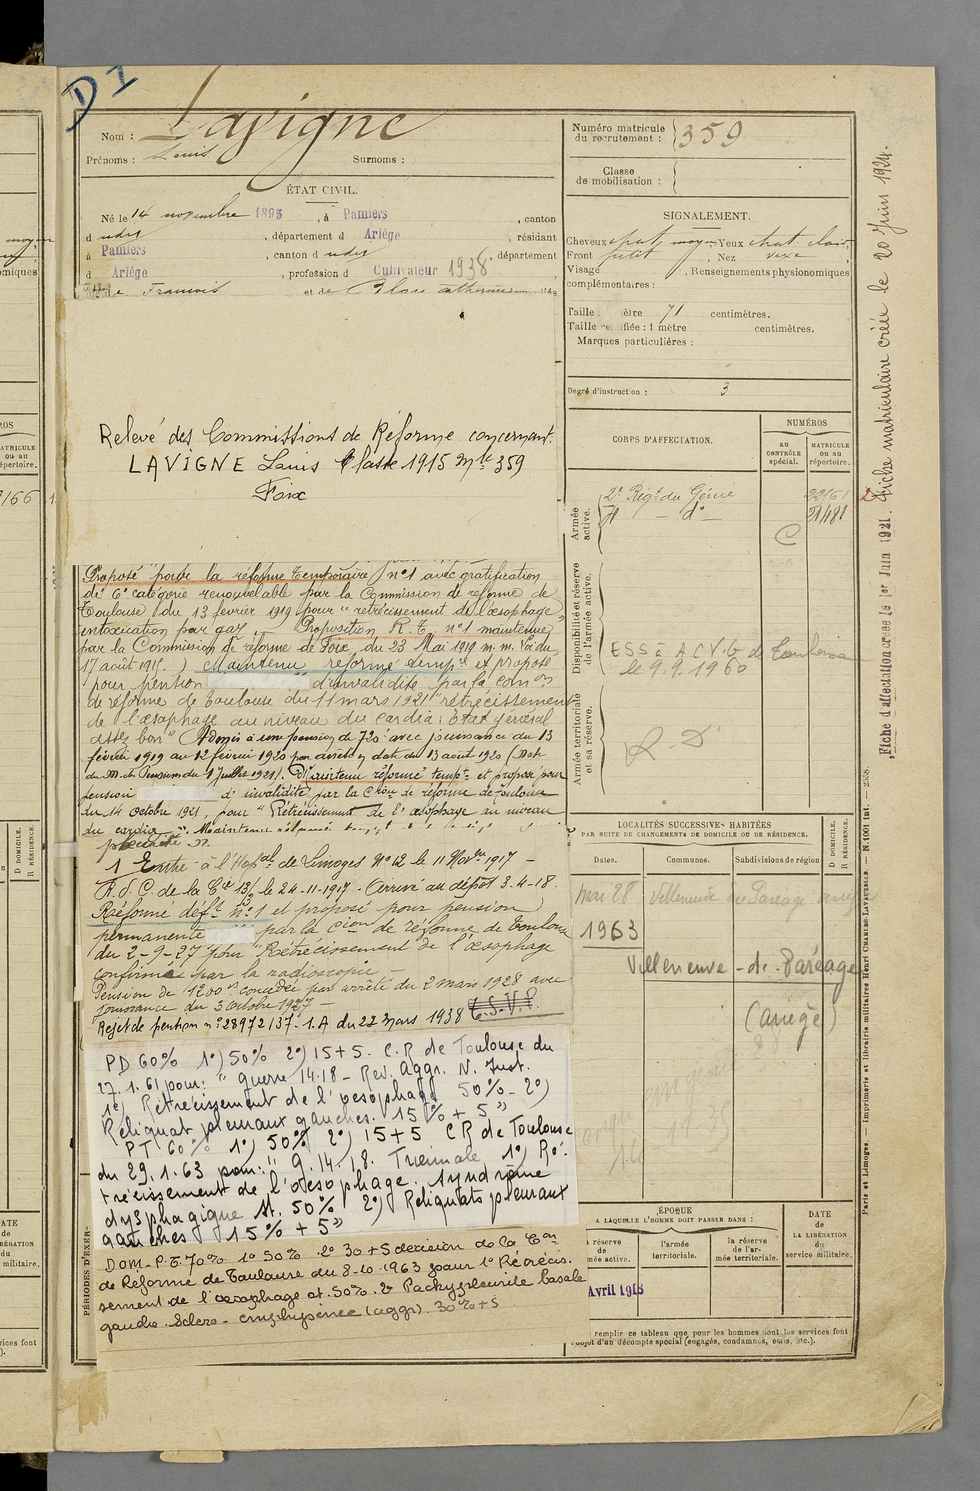 D1
Nom : Lavigne
Prénoms : Louis Surnoms :
ÉTAT CIVIL.
Né le 14 novembre 1895, à Pamiers, canton
d udit, département d Ariège, résidant
à Pamiers, canton d udit, département
d Ariège, profession d Cultivateur 1938
de Francois et de Blou
Relevé des Commissions de Réforme concernant
LAVIGNE Louis Classe 1915 Mle 359
Foix
Proposé pour la réforme temporaire n°1 avec gratification
de 6e catégorie renouvelable par la Commission de réforme de
Toulouse du 13 février 1919 pour "retrécissement de l'œsophage
intoxication par gaz. Proposition R.T. n°1 maintenue
par la Commission de réforme de Foix du 23 Mai 1919 m. m. Loi du
17 août 1915.) Maintenu réformé tempre et proposé
pour pension d'invalidité par la comon
de réforme de Toulouse du 11 mars 1921 "rétrécissement
de l'œsophage au niveau du cardia; Etat général
assez bon" Admis à une pension de 720f avec jouissance du 13
février 1919 au 12 février 1920 par arrêté en date du 13 août 1920 (Not.
du M. des Pensions du 1 Juillet 1921). Maintenu réformé tempre et proposé pour
pension d'invalidité par la Cion de réforme de Toulouse
du 14 octobre 1921, pour "Rétrécissement de l'œsophage au niveau
du cardia". Maintenu
1 Entré à l'Hopal de Limoges N°12 le 11 Novre 1917 -
R.d.C. de la Cie 13/ le 24-11-1917. Arrivé au dépôt 3-4-18.
Réformé déft n°1 et proposé pour pension
permanente par la Cion de réforme de Toulouse
du 2-9-27 pour "Rétrécissement de l'œsophage
confirmée par la radioscopie -
Pension de 1200f concédée par arrêté du 2 mars 1928 avec
jouissance du 3 octobre 1927 -
Rejet de pention n° 28972/137-1.A du 22 mars 1938
PD 60% 1°) 50% 2°) 15+5 - C.R de Toulouse du
27.1.61 pour: " guerre 14.18 - Rev. Aggr. N. Inst.
1°) Rétrécissement de l'oesophage 50% - 2°)
Réliquat pleuraux gauches. 15% + 5"
PT 60% 1°) 50% 2°) 15+5 CR de Toulouse
du 29.1.63 pour: " G.14.18. Triennale 1°) Ré-
trécissement de l'oesophage. syndrome
dysphagique st. 50% 2°) Reliquats pleuraux
gauches 15% + 5"
DOM - P.T. 70% 1° 50% 2° 30+5 décision de la Con
de Réforme de Toulouse du 8-10-1963 pour 1° Rétrécis-
sement de l'oesophage st. 50%. 2° Pachypleurite basale
gauche. Sclero-emphysème (aggr). 30%+5
PÉRIODES D'EXER-
Numéro matricule du recrutement : 359
Classe de mobilisation :
SIGNALEMENT.
Cheveux chat. moyen Yeux chat. clair
Front petit, Nez vexe
Visage , Renseignements physionomiques
complémentaires :
Taille : mètre 71 centimètres.
Taille rectifiée : 1 mètre centimètres.
Marques particulières :
Degré d'instruction : 3
CORPS D'AFFECTATION.
NUMÉROS
au CONTRÔLE spécial.
MATRICULE ou au répertoire.
Armée active.
2e Régt du Génie 22161
d° 21481
C
Disponibilité et réserve de l'armée active.
ESS à A.C.V.G de Toulouse
le 9.9.1960
Armée territoriale et sa réserve.
R.D.
LOCALITÉS SUCCESSIVES HABITÉES
PAR SUITE DE CHANGEMENTS DE DOMICILE OU DE RÉSIDENCE.
Dates. Communes. Subdivisions de région. D DOMICILE. R RÉSIDENCE.
Mai 28 Villeneuve du Paréage Ariège
1963
Villeneuve-de-Paréage
(ariège)
ÉPOQUE
A LAQUELLE L'HOMME DOIT PASSER DANS :
la réserve de l'armée active.
l'armée territoriale.
la réserve de l'armée territoriale.
DATE de LA LIBÉRATION du service militaire.
Avril 1918
remplir ce tableau que pour les hommes dont les services font
l'objet d'un décompte spécial (engagés, condamnés, omis, etc.).
Fiche d'affectation créée le 1er Juin 1921. Fiche matriculaire créée le 20 Juin 1924.
Paris et Limoges. — Imprimerie et librairie militaires Henri CHARLES-LAVAUZELLE.